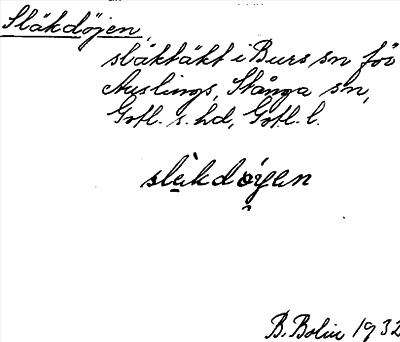 Släkdöjen,
släktäkt i Burs sn för
Auslings, Stånga sn,
Gotl. s. hd, Gotl. l.
slèkdǫ́yen
B. Bolin 1932